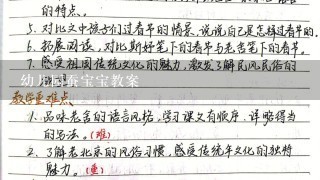 的特点。
5. 对比文中孩子们过春节的情景,说说自己是怎样过春节的。
6. 拓展阅读,对比斯妤笔下的春节与老舍笔下的春节。
7. 感受祖国传统文化的魅力,激发了解民风民俗的
幼儿园蚕宝宝教案
教学重难点
1. 品味老舍的语言风格,学习课文有顺序、详略得当
的写法。(难)
2. 了解老北京的风俗习惯,感受传统年文化的独特
魅力。(重)